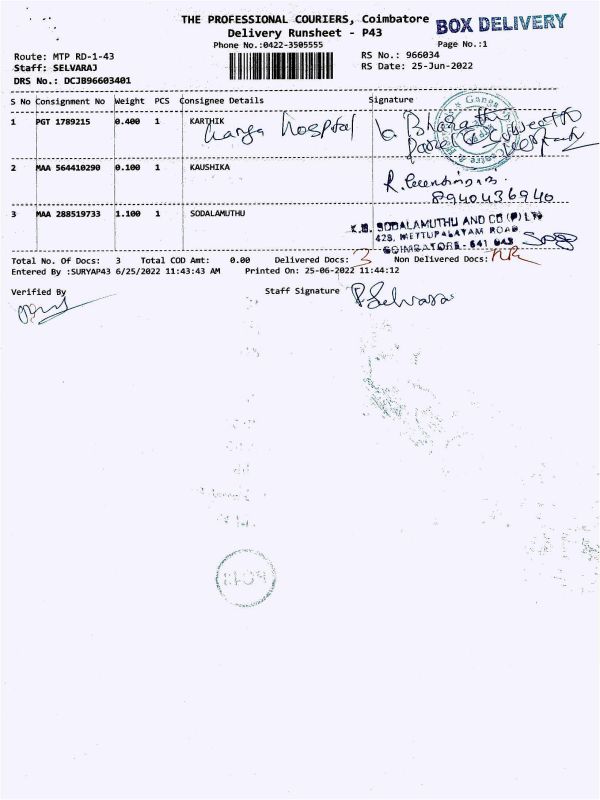 THE PROFESSIONAL COURIERS, Coimbatore
BOX DELIVERY
Delivery Runsheet - P43
Phone No.:0422-3505555
Page No.:1
Route: MTP RD-1-43
RS No.: 966034
Staff: SELVARAJ
RS Date: 25-Jun-2022
DRS No.: DCJB96603401
S No Consignment No Weight PCS Consignee Details Signature
1 PGT 1789215 0.400 1 KARTHIK
hospital
Bharathi
2 MAA 564410290 0.100 1 KAUSHIKA
8940436940
3 MAA 288519733 1.100 1 SODALAMUTHU
K.B. SODALAMUTHU AND CO (P) LTD
428, METTUPALAYAM ROAD
COIMBATORE - 641 043
Total No. Of Docs: 3 Total COD Amt: 0.00 Delivered Docs: 3 Non Delivered Docs: NR
Entered By :SURYAP43 6/25/2022 11:43:43 AM Printed On: 25-06-2022 11:44:12
Verified By Staff Signature P. Selvaraj